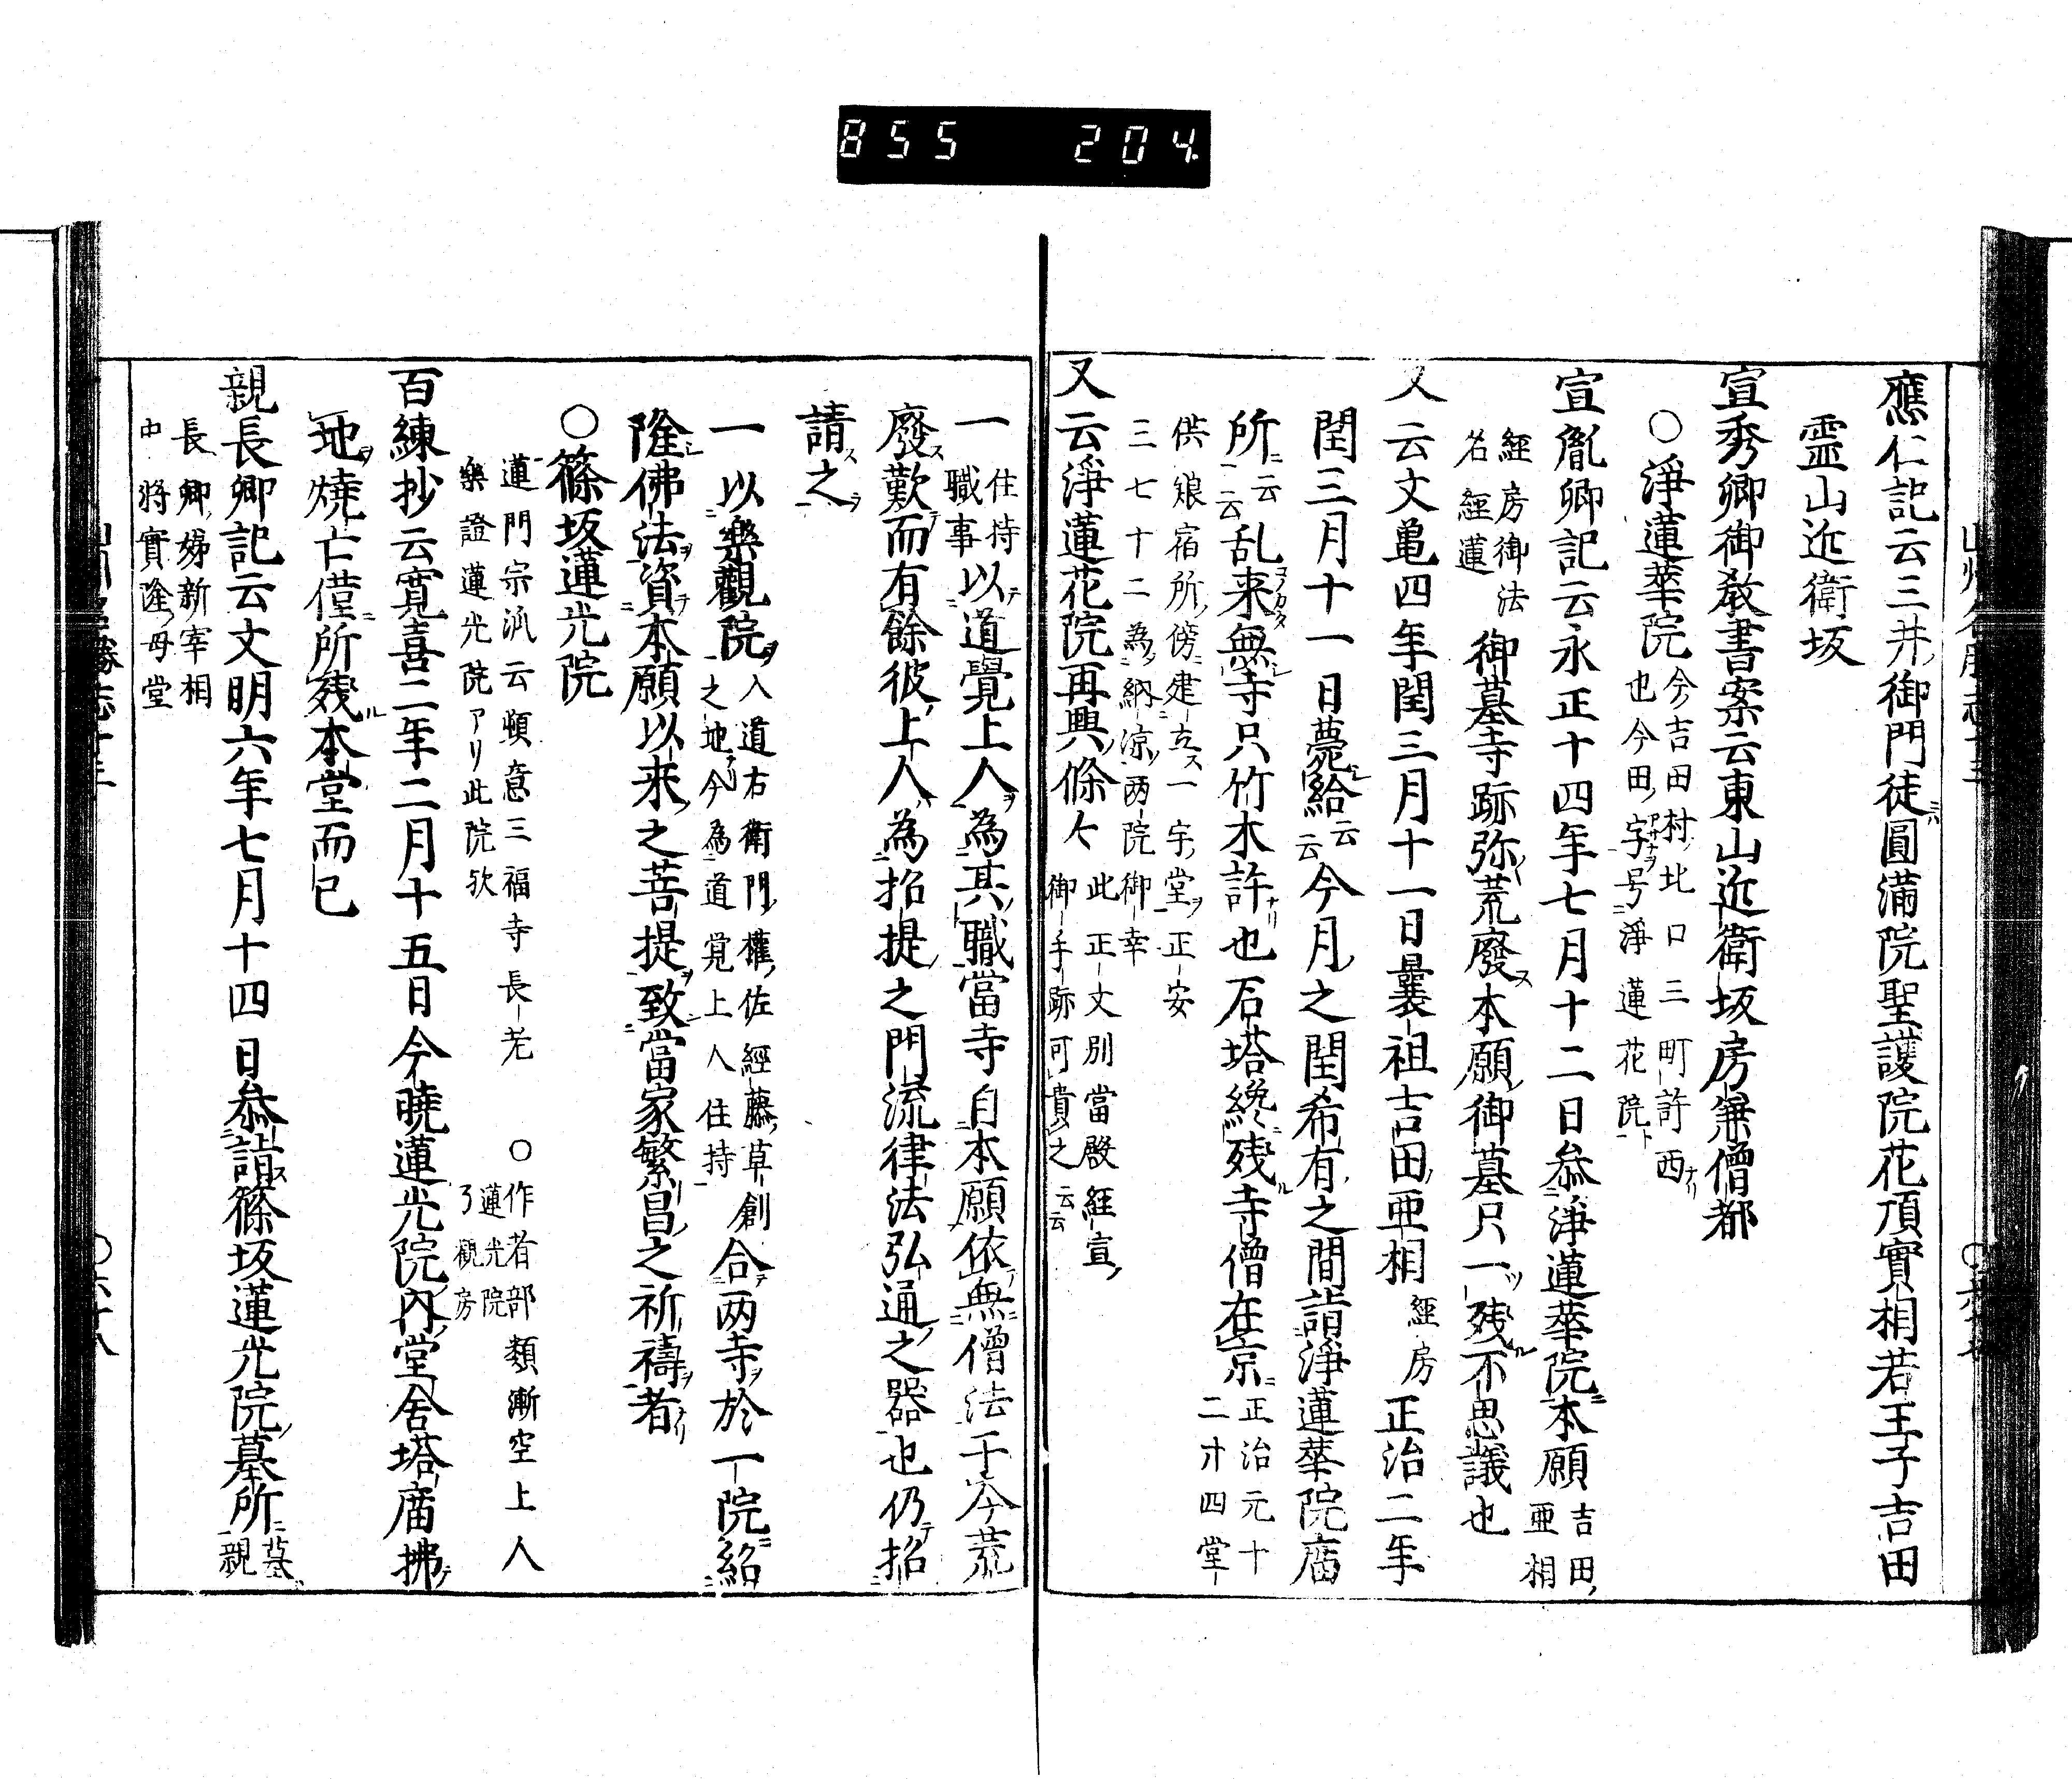 855 204
應仁記云三井ノ御門徒ニハ圓滿院聖護院花頂實相若王子吉田
霊山近衛坂
宣秀卿御教書案云東山近衛坂房兼僧都
○淨蓮華院今吉田村ノ北口三町許西ナリ
也今田ノ字ヲ号淨蓮花院ト
宣胤卿記云永正十四年七月十二日叅淨蓮華院本願吉田ノ
亜相
經房御法
名經蓮
御墓寺跡弥荒廢ス本願ノ御墓只一ツ残ル不思議也
又云文亀四年閏三月十一日曩祖吉田ノ亜相經房正治二年
閏三月十一日薨給云云今月之閏希有之間詣淨蓮華院庿
所ニ云云乱来無寺只竹木許ナリ也石塔纔ニ残ル寺僧在京ニ正治元十
二廿四堂
供ノ宿所ノ傍ニ建立ス一宇ノ堂ヲ正安
三七十二為納凉両院御幸
又云淨蓮花院再興ノ條々此正文別當殿經宣ノ
御手跡可貴之云云
一住持
職事以道覺上人ヲ為其ノ職當寺自本願依無僧法于今荒
廢ス歎テ而有餘彼ノ上人ハ為招提ノ之門流律法弘通ノ之器也仍テ招
請ス之ヲ
一以樂觀院ヲ入道右衛門ノ權ノ佐經藤ノ草創
之地ナリ今為道覚上人住持
合テ両寺ヲ於一院ニ紹
隆シ佛法ヲ資テ本願以来ノ之菩提ヲ致當家繁昌之祈禱ヲ者ナリ
○篠坂蓮光院
蓮門宗派云頓意三福寺長老
樂證蓮光院アリ此院欤
○作者部類漸空上人
蓮光院
了觀房
百練抄云寛喜二年二月十五日今曉蓮光院ノ内ノ堂舎塔庿拂テ
地ヲ燒亡僅ニ所残ル本堂而已
親長卿記云文明六年七月十四日叅詣ス篠坂蓮光院ノ墓所ニ墓ハ
親
長卿ノ婦新宰相
中將實隆ノ母堂